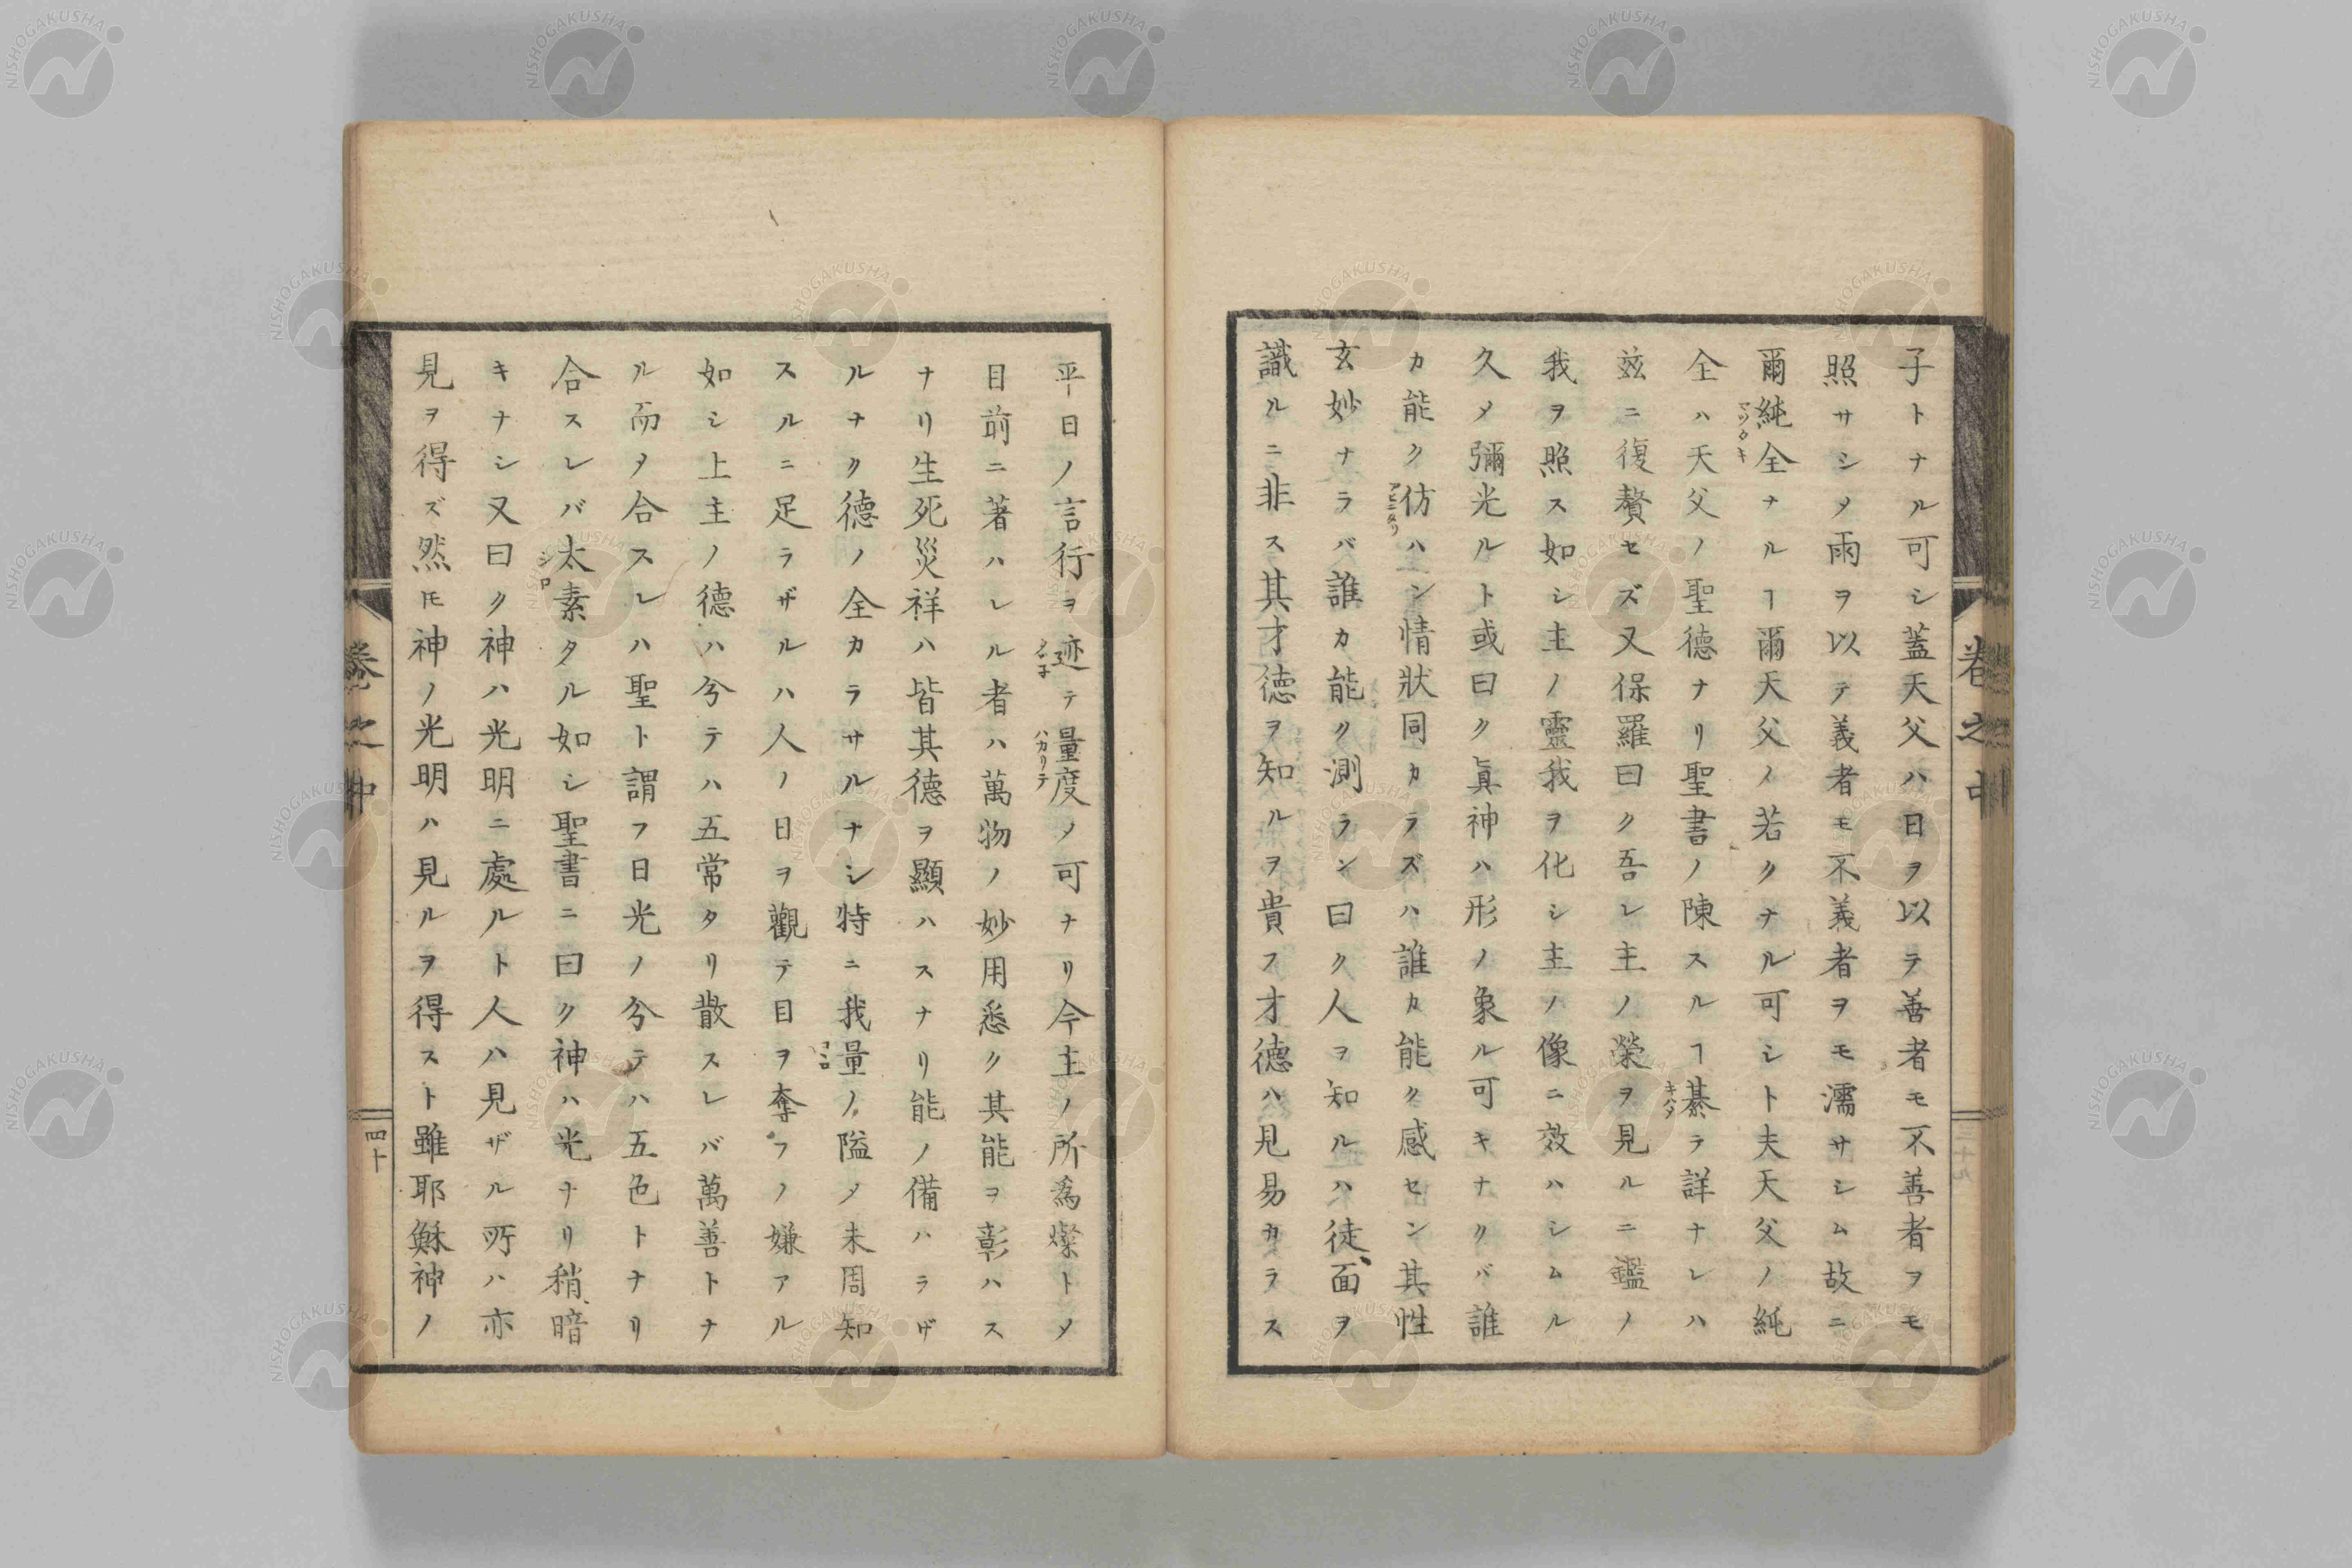 子トナル可シ蓋天父ハ日ヲ以テ善者モ不善者ヲモ
照サシメ雨ヲ以テ義者モ不義者ヲモ濡サシム故ニ
爾純全ナルヿ爾天父ノ若クナル可シト夫天父ノ純
全ハ天父ノ聖德ナリ聖書ノ陳スルヿ綦ヲ詳ナレハ
玆ニ復贅セズ又保羅曰ク吾レ主ノ榮ヲ見ルニ鑑ノ
我ヲ照ス如シ主ノ靈我ヲ化シ主ノ像ニ效ハシムル
久メ彌光ルト或曰ク眞神ハ形ノ象ル可キナクバ誰
カ能ク仿ハン情狀同カラズハ誰カ能ク感セン其性
玄妙ナラバ誰カ能ク測ラン曰ク人ヲ知ルハ徒面ヲ
識ルニ非ス其才徳ヲ知ルヲ貴フ才德ハ見易カラス
卷之中
平日ノ言行ヲ迹テ量度メ可ナリ今主ノ所爲燦トメ
目前ニ著ハレル者ハ萬物ノ妙用悉ク其能ヲ彰ハス
ナリ生死災祥ハ皆其德ヲ顯ハスナリ能ノ備ハラザ
ルナク德ノ全カラサルナシ特ニ我量ノ隘メ未周知
スルニ足ラザルハ人ノ日ヲ觀テ目ヲ奪フノ嫌アル
如シ上主ノ德ハ分テハ五常タリ散スレバ萬善トナ
ル而メ合スレハ聖ト謂フ日光ノ分テハ五色トナリ
合スレバ太素タル如シ聖書ニ曰ク神ハ光ナリ稍暗
キナシ又曰ク神ハ光明ニ處ルト人ハ見ザル所ハ亦
見ヲ得ズ然𪜈神ノ光明ハ見ルヲ得スト雖耶穌神ノ
卷之中
四十